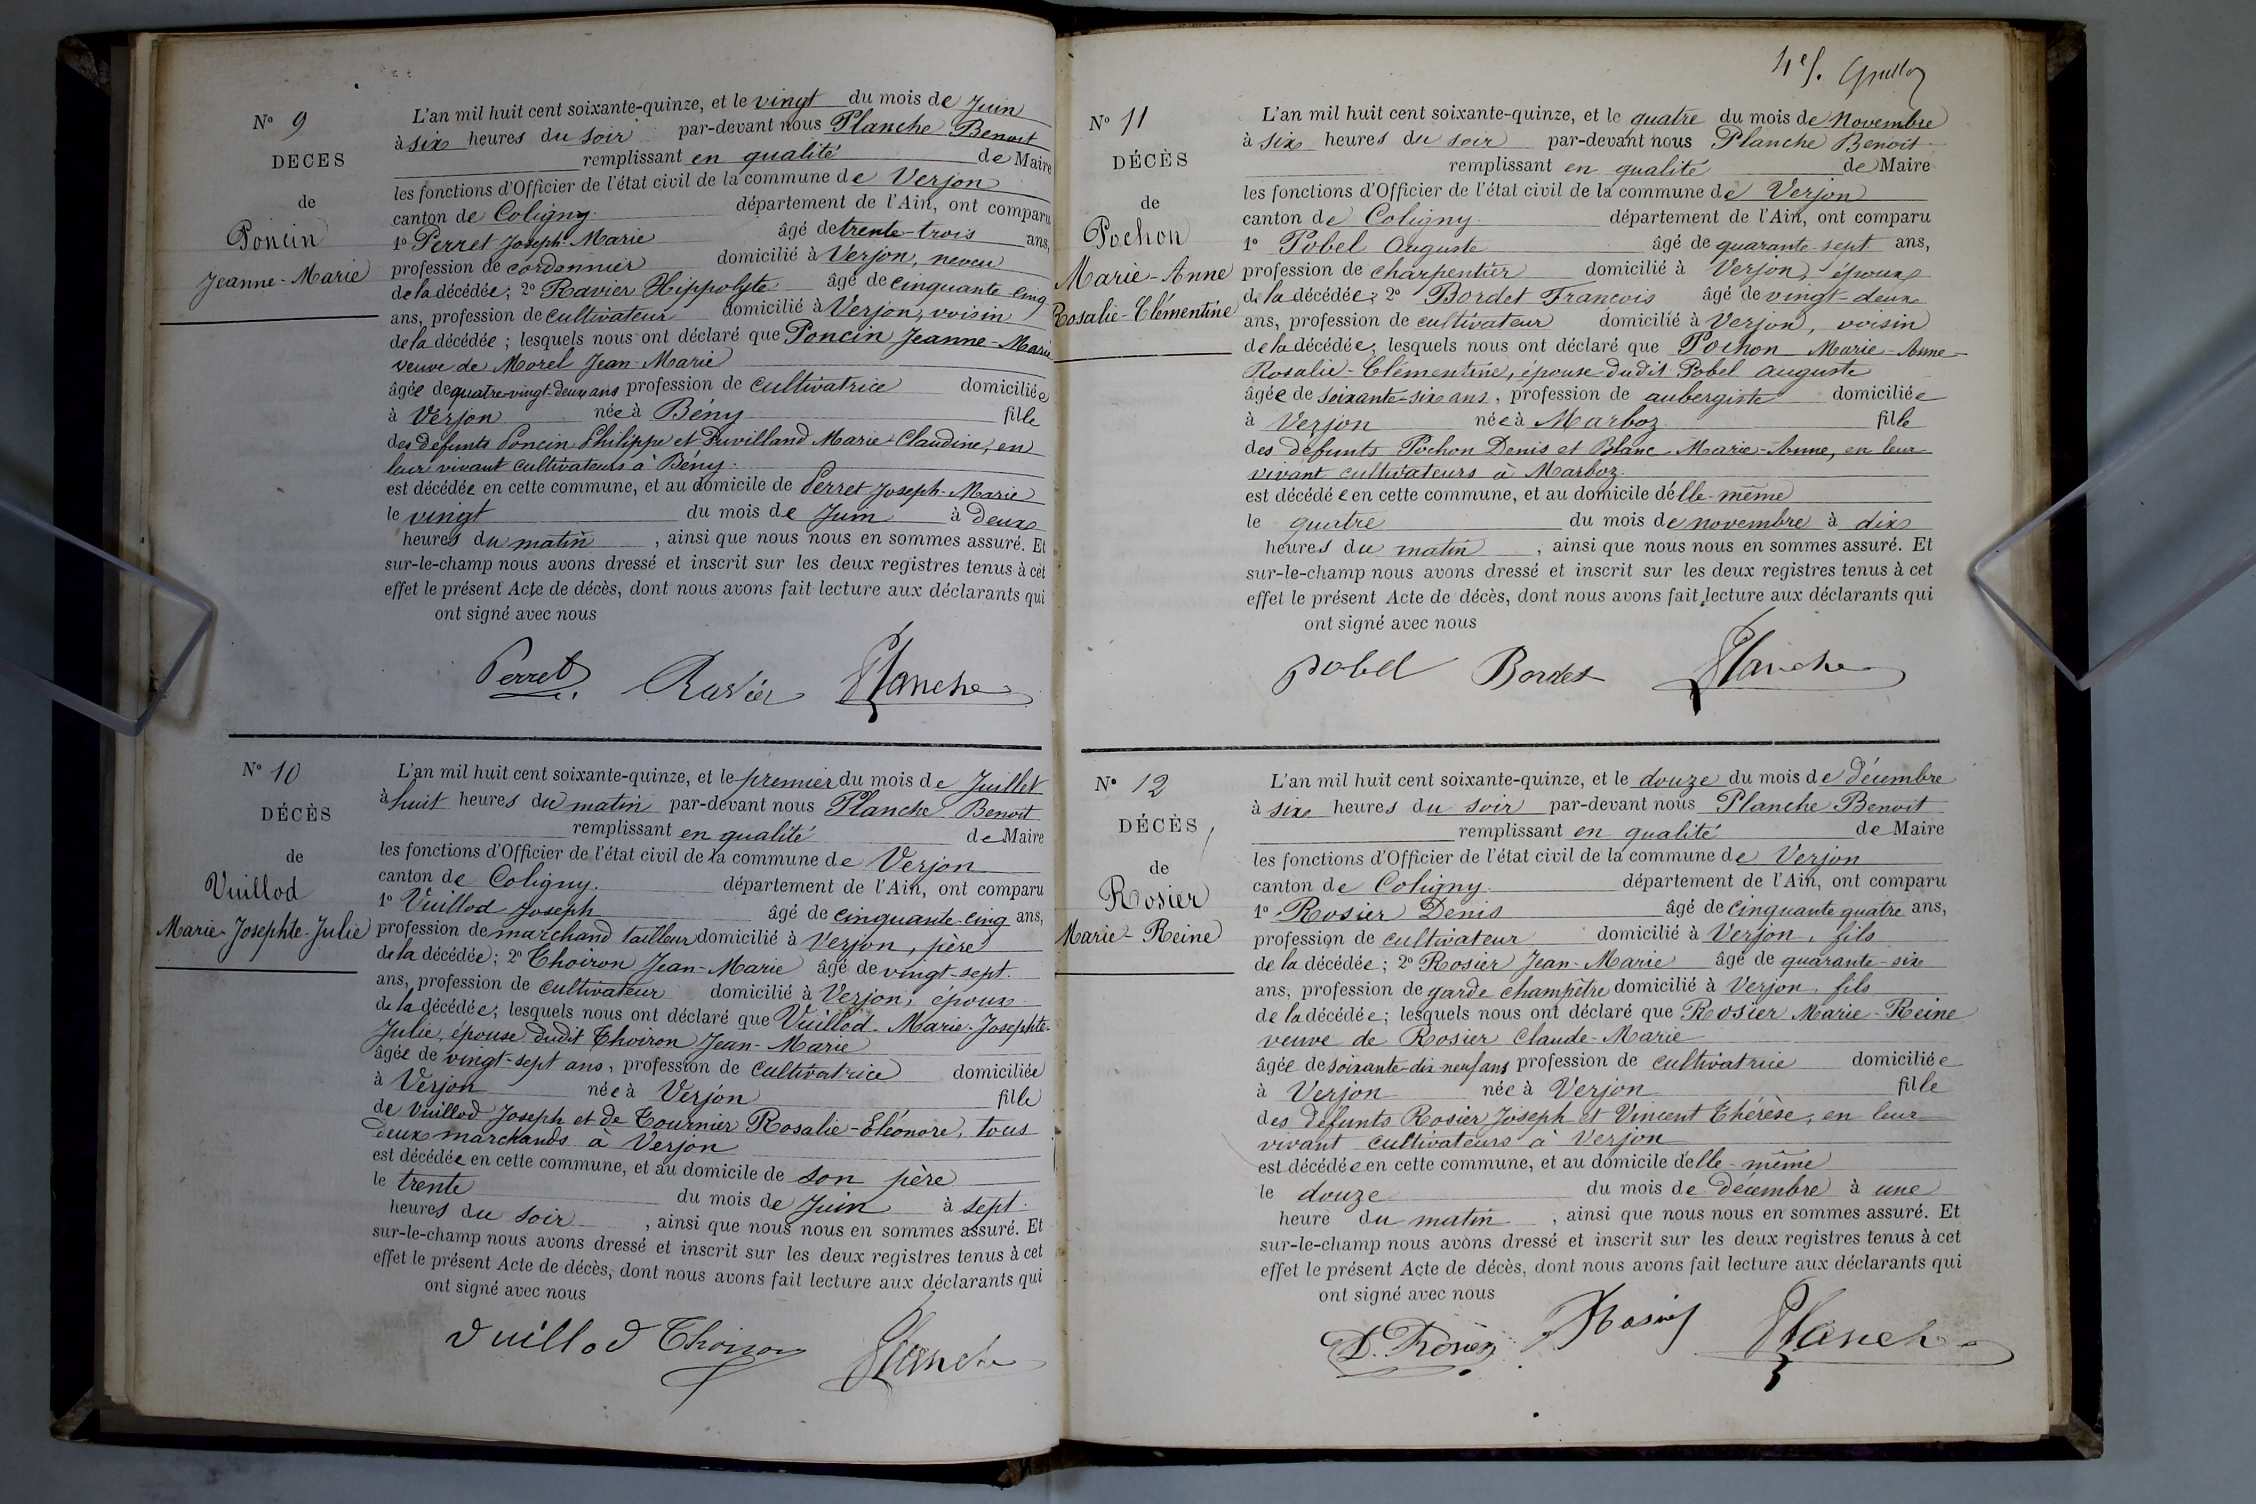 Nº 9
DECES
de
Poncin
Jeanne-Marie
L'an mil huit cent soixante-quinze, et le vingt du mois de Juin
à six heures du soir par-devant nous Planche Benoit
remplissant en qualité de Maire
les fonctions d'Officier de l'état civil de la commune de Verjon
canton de Coligny département de l'Ain, ont comparu
1º Perret Joseph-Marie âgé de trente-trois ans,
profession de cordonnier domicilié à Verjon, neveu
de la décédée; 2º Ravier Hippolyte âgé de cinquante cinq
ans, profession de cultivateur domicilié à Verjon, voisin
de la décédée; lesquels nous ont déclaré que Poncin Jeanne-Marie
veuve de Morel Jean-Marie
âgée de quatre-vingt-deux ans profession de cultivatrice domiciliée
à Verjon née à Bény fille
des défunts Poncin Philippe et Duvilland Marie-Claudine, en
leur vivant cultivateurs à Bény.
est décédée en cette commune, et au domicile de Perret Joseph-Marie
le vingt du mois de Juin à deux
heures du matin, ainsi que nous nous en sommes assuré. Et
sur-le-champ nous avons dressé et inscrit sur les deux registres tenus à cet
effet le présent Acte de décès, dont nous avons fait lecture aux déclarants qui
ont signé avec nous
Perret Ravier Planche
Nº 10
DÉCÈS
de
Vuillod
Marie-Josephte-Julie
L'an mil huit cent soixante-quinze, et le premier du mois de Juillet
à huit heures du matin par-devant nous Planche Benoit
remplissant en qualité de Maire
les fonctions d'Officier de l'état civil de la commune de Verjon
canton de Coligny. département de l'Ain, ont comparu
1º Vuillod Joseph âgé de cinquante-cinq ans,
profession de marchand tailleur domicilié à Verjon, père
de la décédée; 2º Thoiron Jean-Marie âgé de vingt-sept
ans, profession de cultivateur domicilié à Verjon, époux
de la décédée; lesquels nous ont déclaré que Vuillod Marie-Josephte-
Julie, épouse dudit Thoiron Jean-Marie
âgée de vingt-sept ans, profession de cultivatrice domiciliée
à Verjon née à Verjon fille
de Vuillod Joseph et de Tournier Rosalie-Eléonore, tous
deux marchands à Verjon
est décédée en cette commune, et au domicile de son père
le trente du mois de Juin à sept
heures du soir, ainsi que nous nous en sommes assuré. Et
sur-le-champ nous avons dressé et inscrit sur les deux registres tenus à cet
effet le présent Acte de décès, dont nous avons fait lecture aux déclarants qui
ont signé avec nous
Vuillod Thoiron Planche
4e f.
Nº 11
DÉCÈS
de
Pochon
Marie-Anne
Rosalie-Clémentine
L'an mil huit cent soixante-quinze, et le quatre du mois de Novembre
à six heures du soir par-devant nous Planche Benoit
remplissant en qualité de Maire
les fonctions d'Officier de l'état civil de la commune de Verjon
canton de Coligny. département de l'Ain, ont comparu
1º Pobel Auguste âgé de quarante-sept ans,
profession de charpentier domicilié à Verjon, époux
de la décédée; 2º Bordet François âgé de vingt-deux
ans, profession de cultivateur domicilié à Verjon, voisin
de la décédée; lesquels nous ont déclaré que Pochon Marie-Anne
Rosalie-Clémentine, épouse dudit Pobel Auguste
âgée de soixante-six ans, profession de aubergiste domiciliée
à Verjon née à Marboz fille
des défunts Pochon Denis et Blanc Marie-Anne, en leur
vivant cultivateurs à Marboz.
est décédée en cette commune, et au domicile d'elle-même
le quatre du mois de novembre à dix
heures du matin, ainsi que nous nous en sommes assuré. Et
sur-le-champ nous avons dressé et inscrit sur les deux registres tenus à cet
effet le présent Acte de décès, dont nous avons fait lecture aux déclarants qui
ont signé avec nous
pobel Bordet Planche
Nº 12
DÉCÈS
de
Rosier
Marie-Reine
L'an mil huit cent soixante-quinze, et le douze du mois de décembre
à six heures du soir par-devant nous Planche Benoit
remplissant en qualité de Maire
les fonctions d'Officier de l'état civil de la commune de Verjon
canton de Coligny. département de l'Ain, ont comparu
1º Rosier Denis âgé de cinquante quatre ans,
profession de cultivateur domicilié à Verjon, fils
de la décédée; 2º Rosier Jean-Marie âgé de quarante-six
ans, profession de garde champêtre domicilié à Verjon, fils
de la décédée; lesquels nous ont déclaré que Rosier Marie-Reine
veuve de Rosier Claude-Marie
âgée de soixante-dix-neuf ans profession de cultivatrice domiciliée
à Verjon née à Verjon fille
des défunts Rosier Joseph et Vincent Thérèse, en leur
vivant cultivateurs à Verjon
est décédée en cette commune, et au domicile d'elle-même
le douze du mois de décembre à une
heure du matin, ainsi que nous nous en sommes assuré. Et
sur-le-champ nous avons dressé et inscrit sur les deux registres tenus à cet
effet le présent Acte de décès, dont nous avons fait lecture aux déclarants qui
ont signé avec nous
D. Rosier Rosier Planche